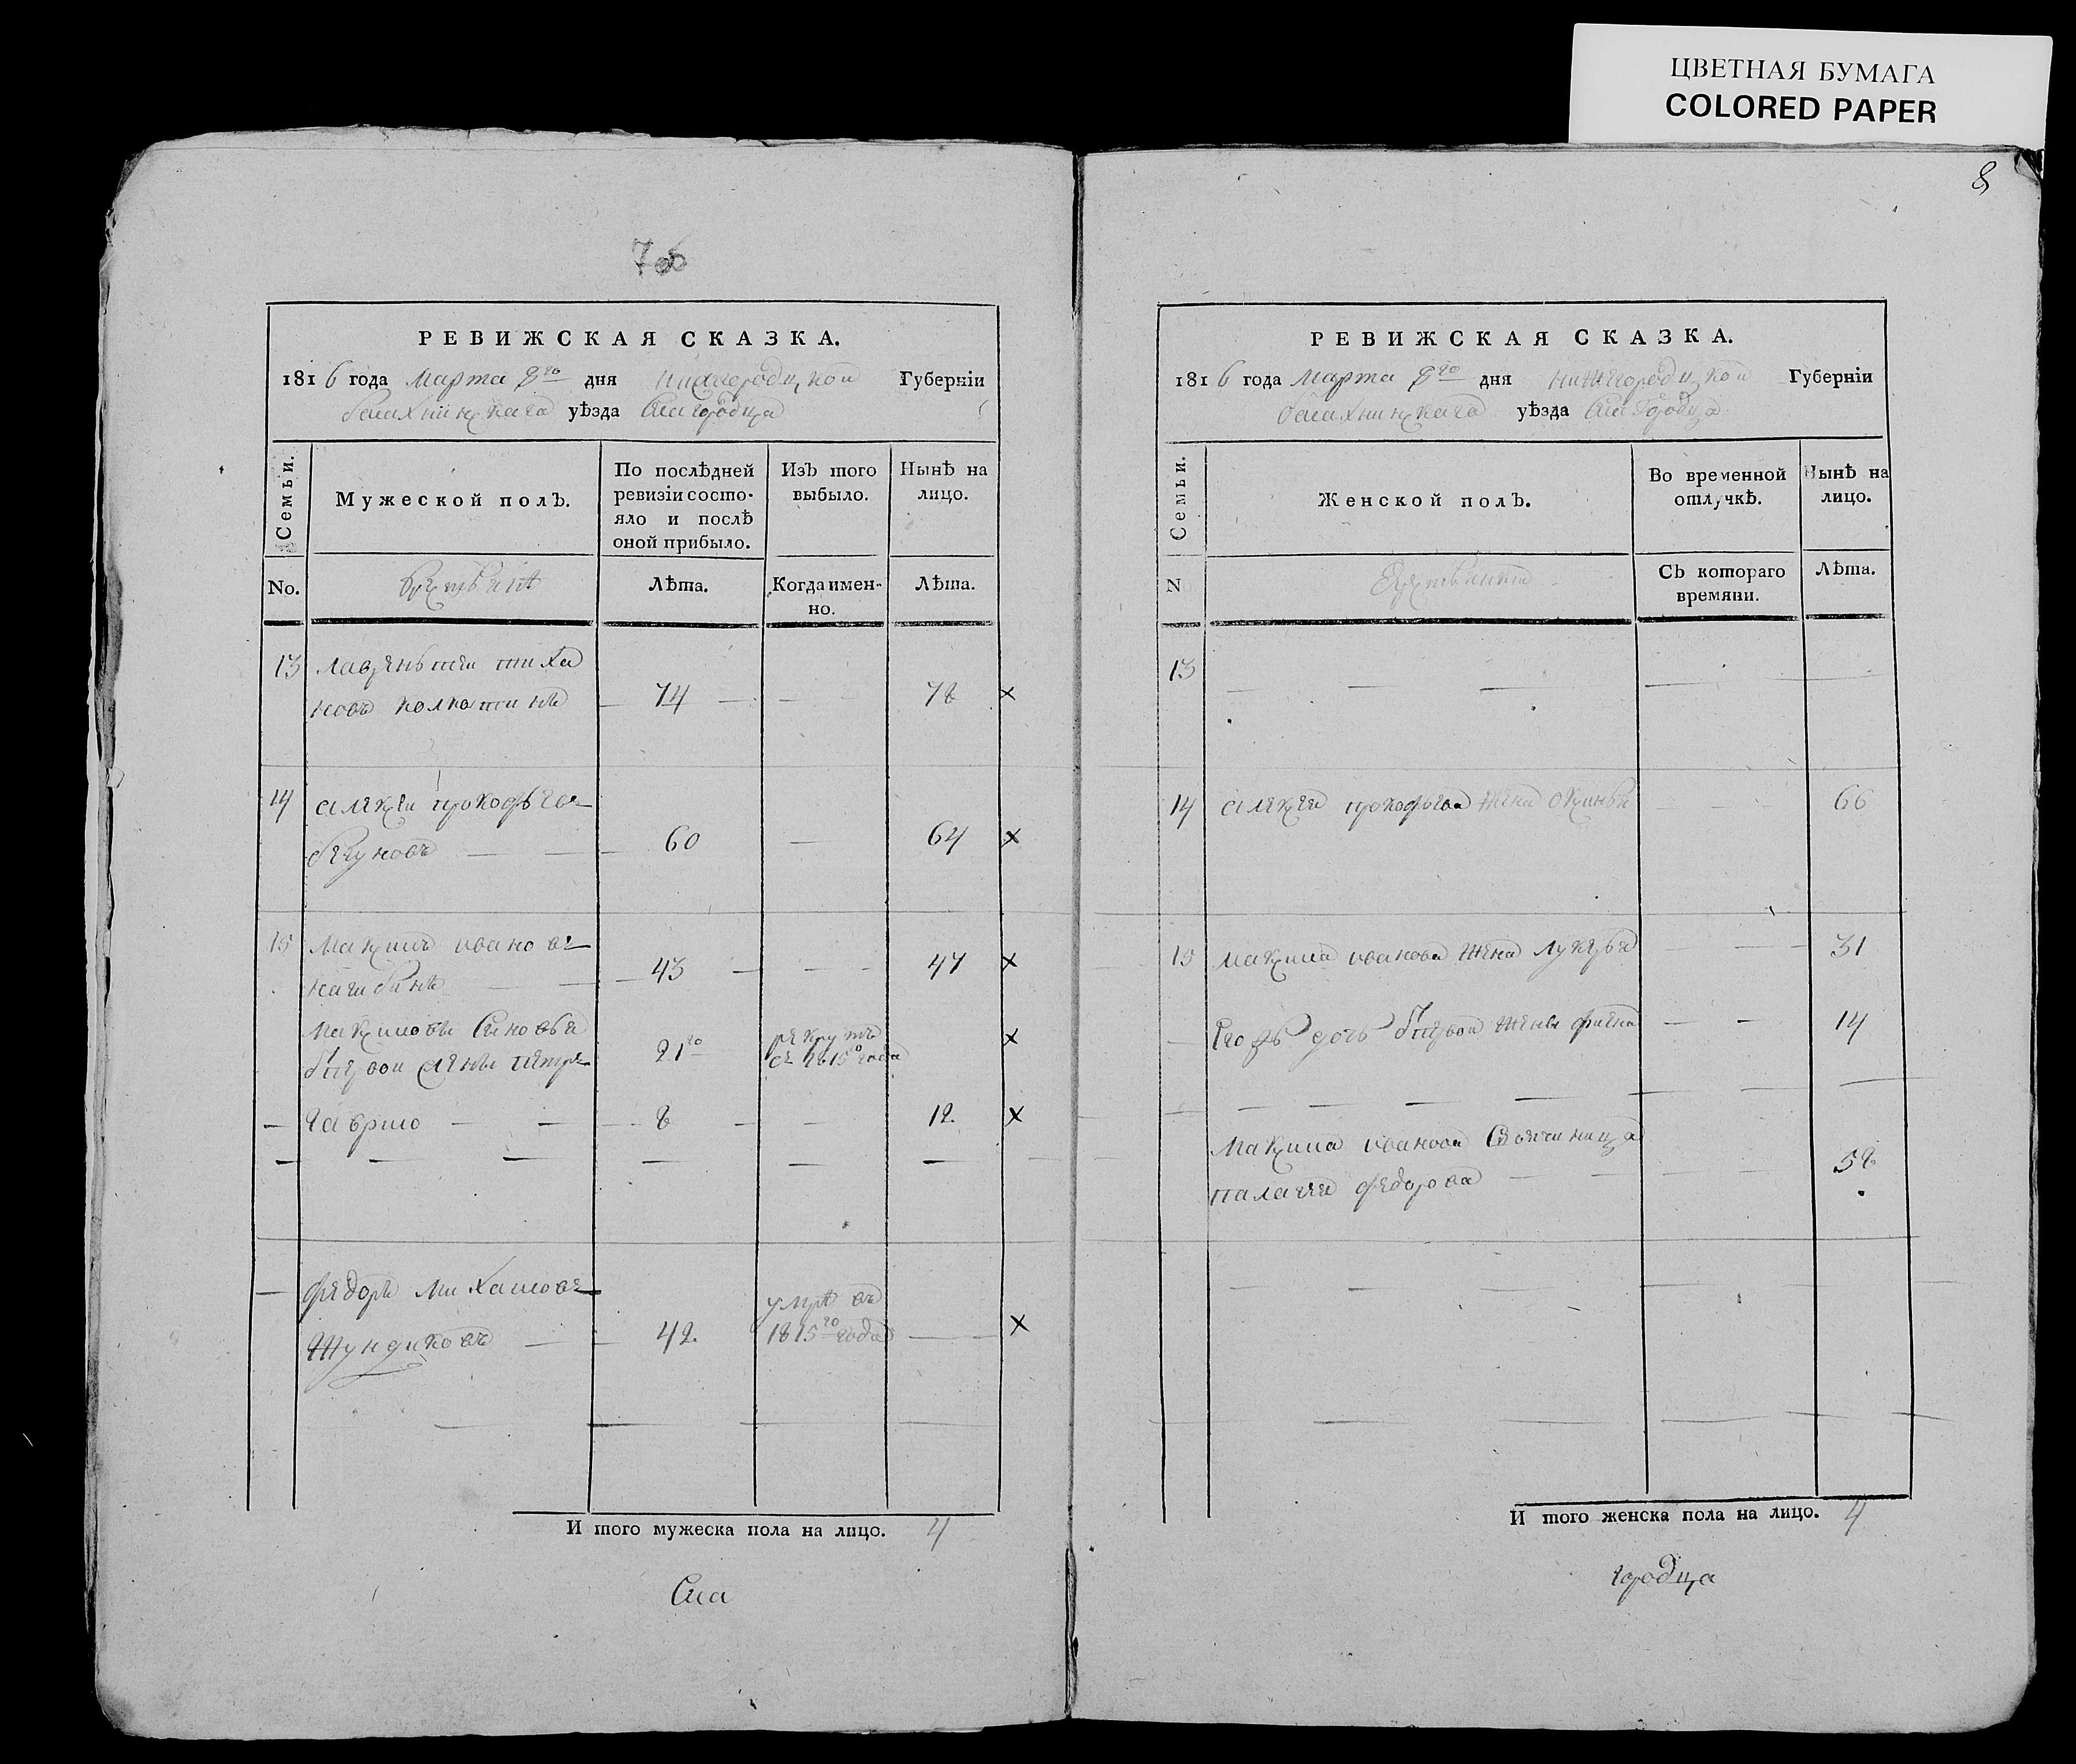 ЦВЕТНАЯ БУМАГА
COLORED PAPER
8
7об
РЕВИЖСКАЯ СКАЗКА.
1816 года Марта 8го дня нижегородцкой Губерніи
балахнинскаго уѣзда Села городца
Семьи.
Мужеской полъ.
По послѣдней ревизіи состо-
яло и послѣ
оной прибыло.
Изъ того
выбыло.
Нынѣ на
лицо.
No.
Лѣта.
Когда имен-
но.
Лѣта.
13 лаврентеи тиха
новъ 74 78 ×
14 алексеи прокофьевъ
бегуновъ 60 64 ×
15 Максимъ ивановъ
нагибинъ 43 47 ×
Максимовы Сыновья
отпервои жены петръ 21го рекрутъ
съ 1815го года ×
гаврило 8 12. ×
федоръ Михаиловъ
Шундиковъ 42. умре въ
1815го года ×
И того мужеска пола на лицо. 4
Села
РЕВИЖСКАЯ СКАЗКА.
1816 года Марта 8го дня нижегородцкой Губерніи
балахнинскаго уѣзда Села Городца
Семьи.
Женской полъ.
Во временной
отлучкѣ.
Нынѣ на
лицо.
N
Съ котораго
времяни.
Лѣта.
13
14 алексея прокофьева жена 66
15 максима иванова жена лукерья 31
Егожъ дочь отпервои жены 14
Максима иванова Своячиница
палагея федорова 58
И того женска пола на лицо. 4
городца